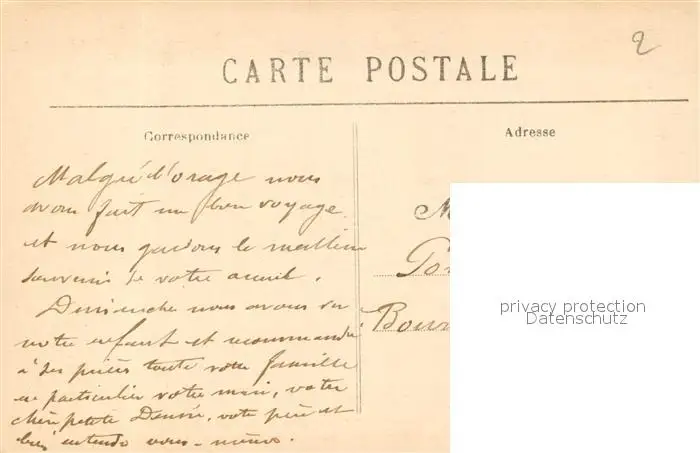 2
CARTE POSTALE
Correspondance
Adresse
Malgré l'orage nous
avons fait un bon voyage
et nous gardons le meilleur
souvenir de votre accueil.
Dimanche nous avons vu
notre enfant et recommandé
à ses prières toute votre famille
en particulier votre mari, votre
chère petite Denise, votre père et
bien entendu vous-même.
M
Bour
privacy protection
Datenschutz